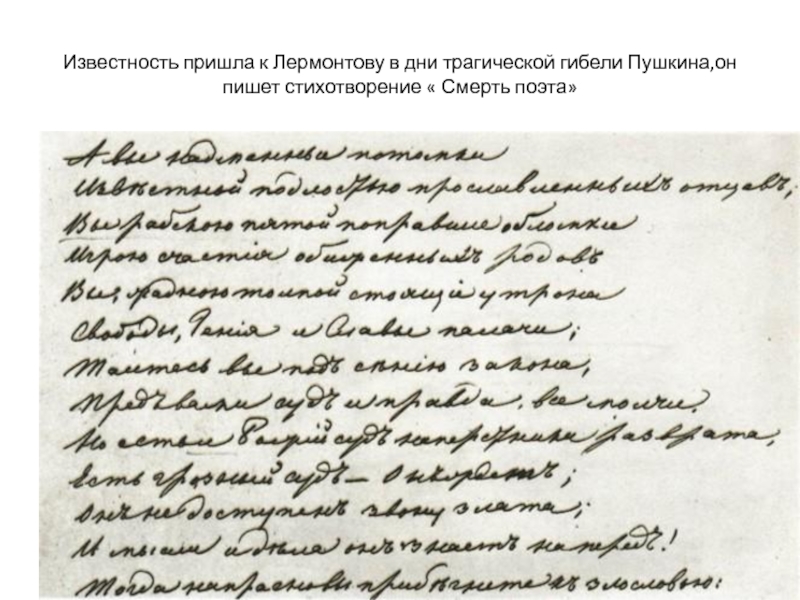 Известность пришла к Лермонтову в дни трагической гибели Пушкина,он
пишет стихотворение « Смерть поэта»
А вы надменныи потомки
Извѣстной подлостью прославленныхъ отцевъ;
Вы рабскою пятой поправшие обломки
Игрою счастія обиженныхъ родовъ
Вы, жадною толпой стоящіе у трона
Свободы, Генія и Славы палачи;
Таитесь вы подъ сѣнію закона,
Предъ вами судъ и правда. все молчи.
Но есть и Божій судъ наперстники разврата,
Есть грозный судъ — Онъ ждетъ;
Онъ не доступенъ звону злата;
И мысли и дѣла онъ знаетъ напередъ!
Тогда напрасно вы прибѣгнете къ злословью: